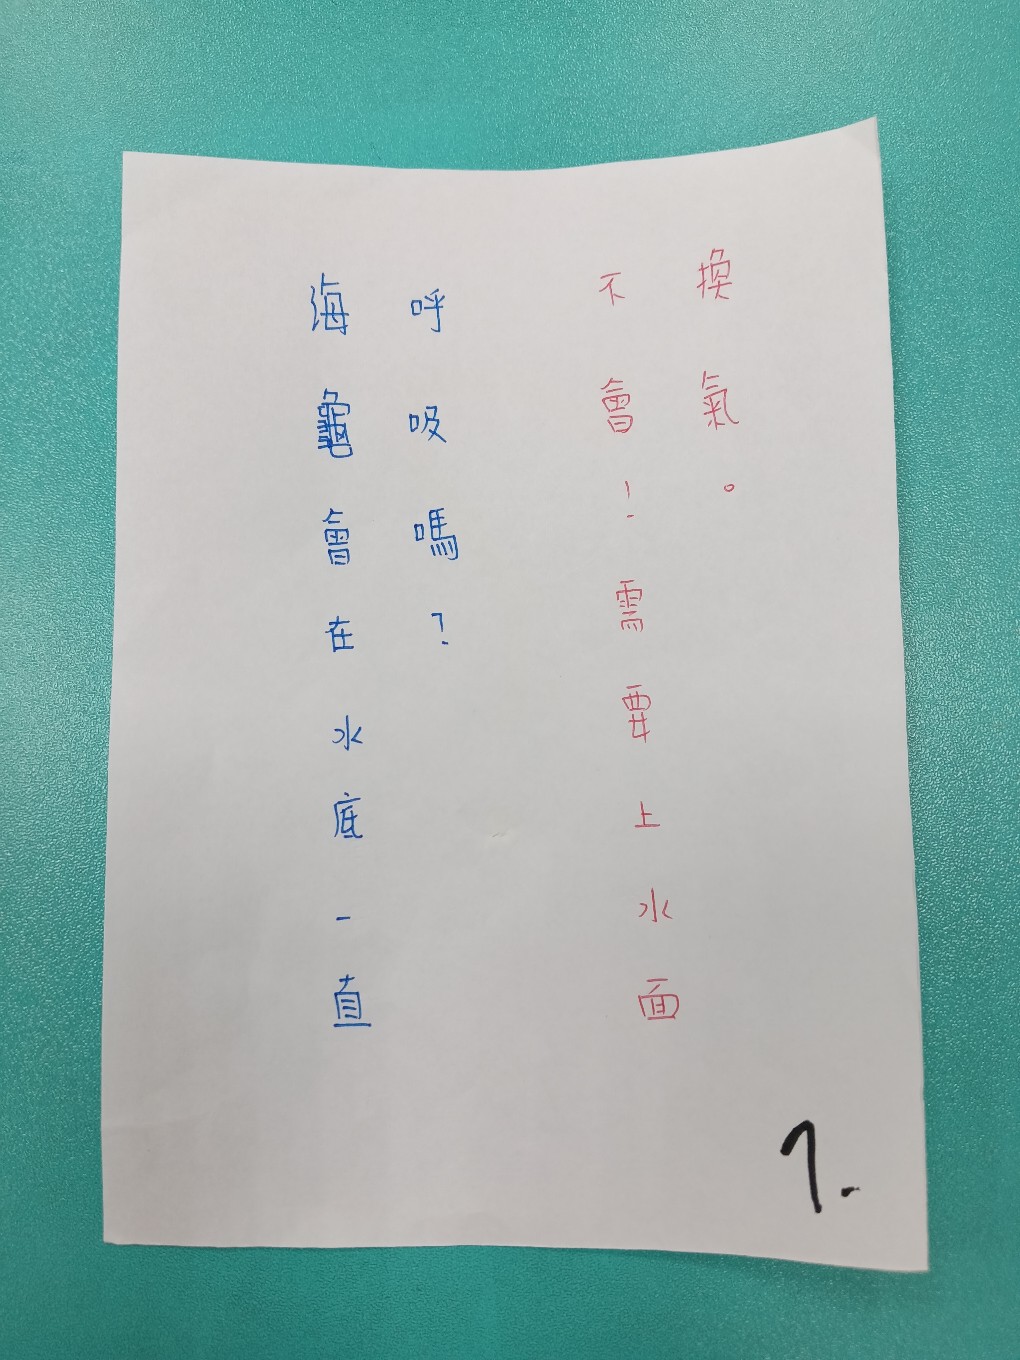 海龜會在水底一直
呼吸嗎?
不會!需要上水面
換氣。
1.